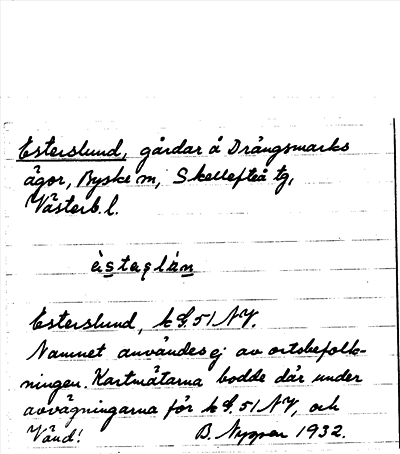 Esterslund, gårdar å Drängsmarks
ägor, Byske sn, Skellefteå tg,
Västerb. l.
Esterslund, k G. 51 NV.
Namnet användes ej av ortsbefolk-
ningen. Kartmätarna bodde där under
avvägningarna för k G. 51 NV, och
Vänd! B. Nyman 1932.